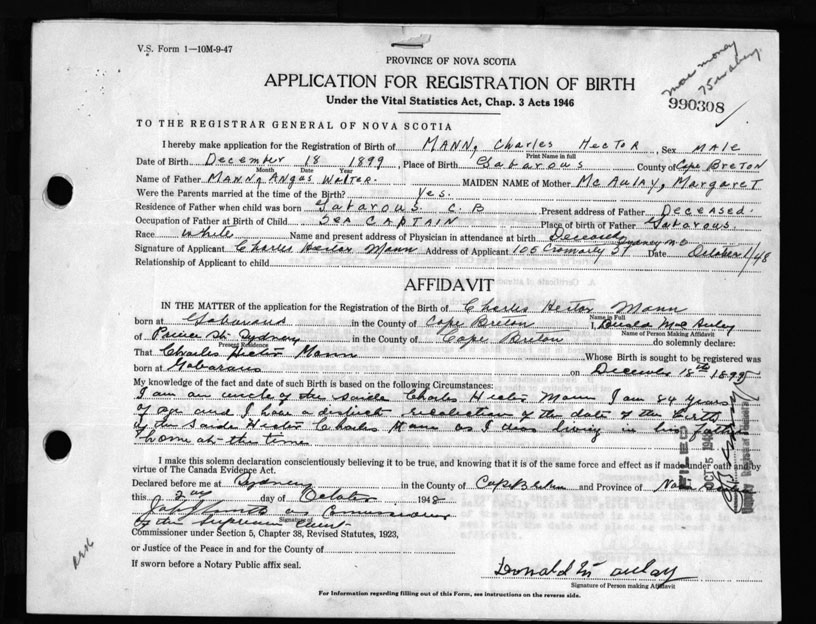 V.S. Form 1—10M-9-47
PROVINCE OF NOVA SCOTIA
APPLICATION FOR REGISTRATION OF BIRTH
Under the Vital Statistics Act, Chap. 3 Acts 1946
mor money
990308
TO THE REGISTRAR GENERAL OF NOVA SCOTIA
I hereby make application for the Registration of Birth of MANN, Charles Hector, Sex MALE
Print Name in full
Date of Birth December 18 1899, Place of Birth Gabarous County of Cape Breton
Month Date Year
Name of Father MANN, Angus Walter. MAIDEN NAME of Mother McAulay, Margaret
Were the Parents married at the time of the Birth? Yes.
Residence of Father when child was born Gabarous C.B Present address of Father Deceased.
Occupation of Father at Birth of Child SEA CAPTAIN Place of birth of Father Gabarous.
Race White Name and present address of Physician in attendance at birth Deceased
Signature of Applicant Charles Hector Mann Address of Applicant 105 Cromarty St Sydney N.S Date October 1/48
Relationship of Applicant to child
AFFIDAVIT
IN THE MATTER of the application for the Registration of the Birth of Charles Hector Mann
Name in Full
born at Gabarous in the County of Cape Breton I, McAuley
Name of Person Making Affidavit
of Prince St. Sydney in the County of Cape Breton do solemnly declare:
Present Residence
That Charles Hector Mann Whose Birth is sought to be registered was
born at Gabarous on December 18th 1899
My knowledge of the fact and date of such Birth is based on the following Circumstances:
I am an uncle of the saide Charles Hector Mann I am 84 years
of age and I have a distinct recolection of the date of the birth
of the saide Hector Charles Mann as I was living in his father
home at the time
I make this solemn declaration conscientiously believing it to be true, and knowing that it is of the same force and effect as if made under oath and by
virtue of The Canada Evidence Act.
Declared before me at Sydney in the County of Cape Breton and Province of Nova Scotia
this 2 day of October 1948
OCT 5 1948
as Commissioner
of the Supreme Court
Signature of
Commissioner under Section 5, Chapter 38, Revised Statutes, 1923,
or Justice of the Peace in and for the County of
If sworn before a Notary Public affix seal.
Donald McAulay
Signature of Person making Affidavit
For Information regarding filling out of this Form, see instructions on the reverse side.